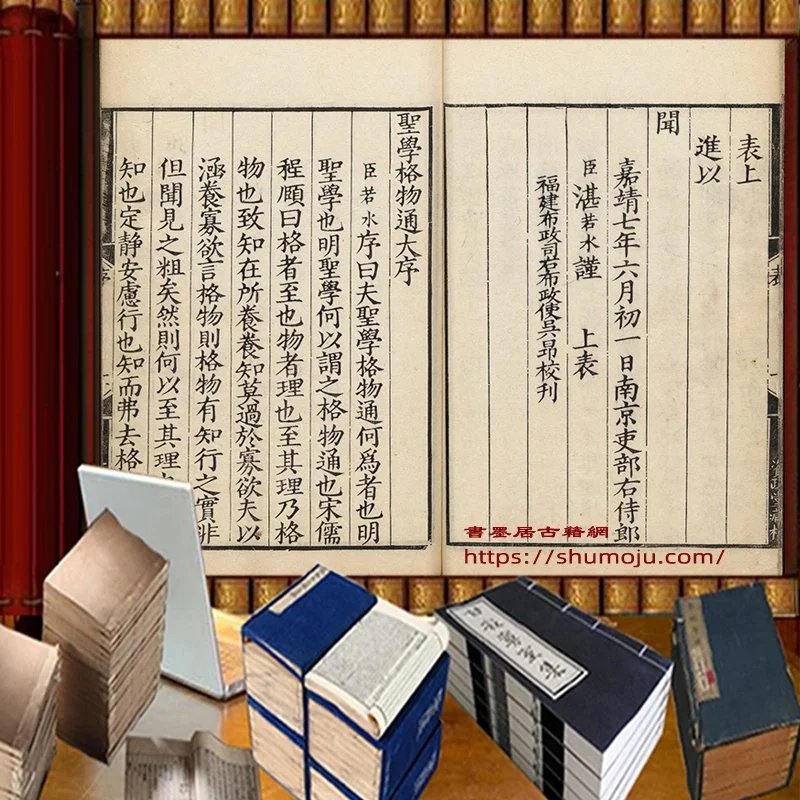 表上
進以
聞
嘉靖七年六月初一日南京吏部右侍郎
臣湛若水謹　上表
福建布政司右布政使吳昂校刊
聖學格物通大序
臣若水序曰夫聖學格物通何為者也明
聖學也明聖學何以謂之格物通也宋儒
程頤曰格者至也物者理也至其理乃格
物也致知在所養養知莫過於寡欲夫以
涵養寡欲言格物則格物有知行之實非
但聞見之粗矣然則何以至其理
知也定靜安慮行也知而弗去格
表
序
書墨居古籍網
https://shumoju.com/